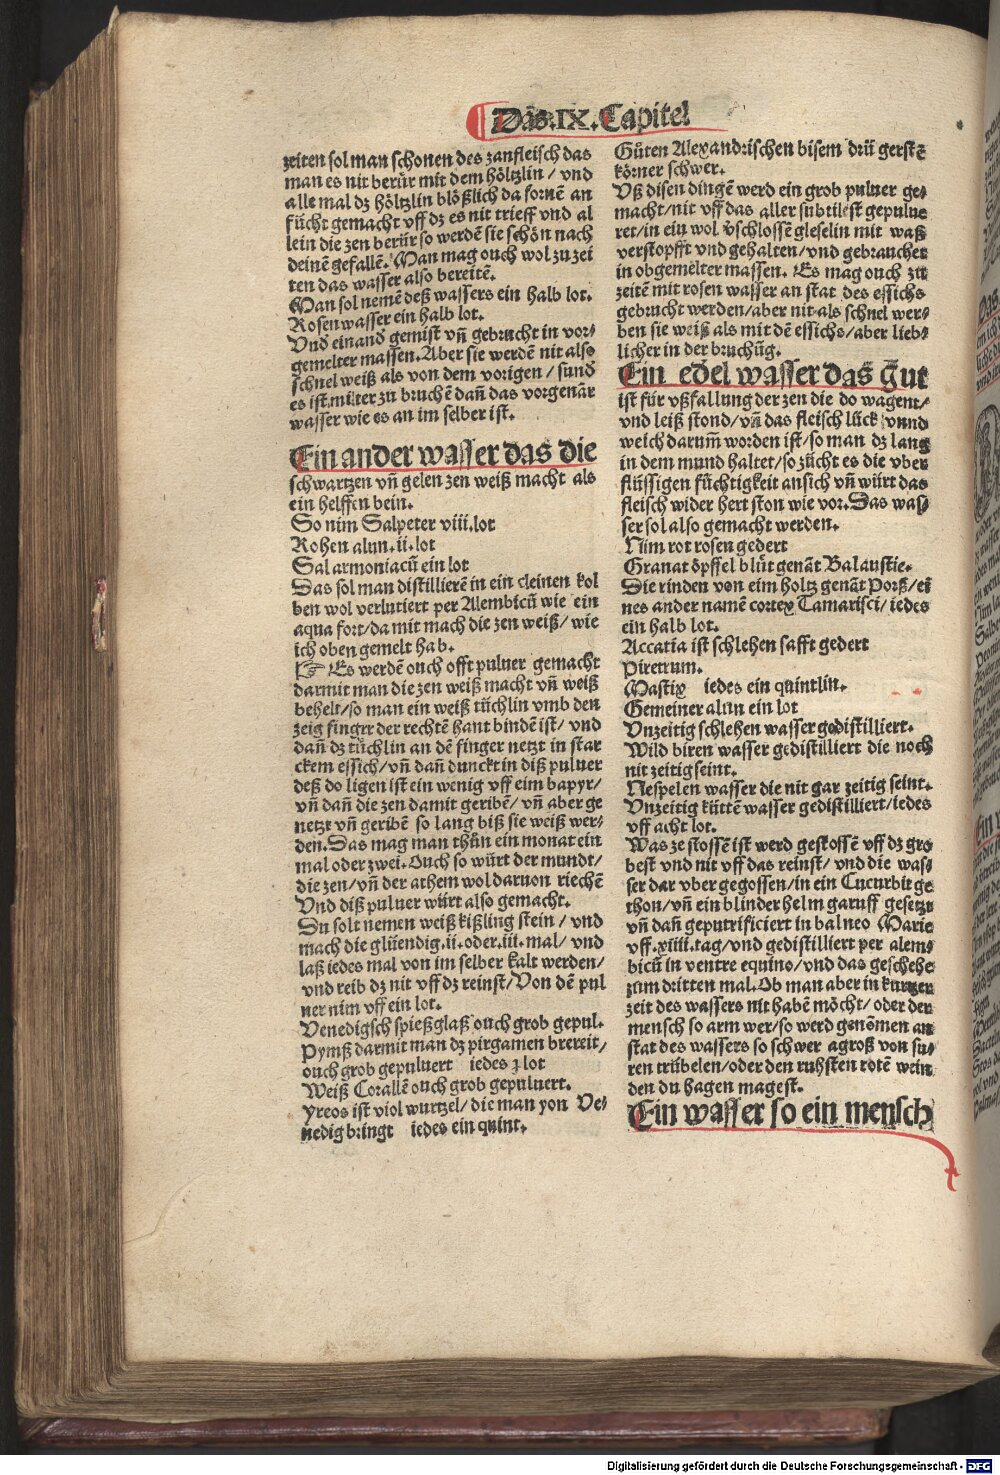 Das.IX.Capitel
zeiten sol man schonen des zanfleisch das
man es nit berůr mit dem höltzlin / vnd
alle mal dz höltzlin blößlich da fornē an
fücht gemacht vff dz es nit trieff vnd al
lein die zen berůr so werdē sie schön nach
deinē gefallē. Man mag ouch wol zu zei
ten das wasser also bereitē.
Man sol nemē deß wassers ein halb lot.
Rosen wasser ein halb lot.
Vnd einand gemist vñ gebrucht in vor-
gemelter massen. Aber sie werdē nit also
schnel weiß als von dem vorigen / sund
es ist milter zu bruchē dañ das vorgenāt
wasser wie es an im selber ist.
Ein ander wasser das die
schwartzen vñ gelen zen weiß macht als
ein helffen bein.
So nim Salpeter viii.lot
Rohen alun.ii.lot
Sal armoniacū ein lot
Das sol man distillierē in ein cleinen kol
ben wol verlutiert per Alembicū wie ein
aqua fort/da mit mach die zen weiß/ wie
ich oben gemelt hab.
☞ Es werdē ouch offt puluer gemacht
darmit man die zen weiß macht vñ weiß
behelt/so man ein weiß tüchlin vmb den
zeig fingrr der rechtē hant bindē ist/ vnd
dañ dz tüchlin an dē finger netzt in star
ckem essich/vñ dañ dunckt in diß puluer
deß do ligen ist ein wenig vff eim bapyr/
vñ dañ die zen damit geribē/ vñ aber ge
netzt vñ geribē so lang biß sie weiß wer-
den. Das mag man thůn ein monat ein
mal oder zwei. Ouch so würt der mundt/
die zen/vñ der athem wol daruon riechē
Vnd diß puluer würt also gemacht.
Du solt nemen weiß kißling stein / vnd
mach die glüendig.ii.oder.iii.mal/ vnd
laß iedes mal von im selber kalt werden/
vnd reib dz nit vff dz reinst/Von dē pul
uer nim vff ein lot.
Venedigsch spießglaß ouch grob gepul.
Pymß darmit man dz pirgamen brereit/
ouch grob gepuluert iedes ʒ lot
Weiß Corallē ouch grob gepuluert.
Yreos ist viol wurtzel/ die man von Ve-
nedig bringt iedes ein quint.
Gůten Alexandrischen bisem drü gerstē
körner schwer.
Vß disen dingē werd ein grob puluer ge-
macht/nit vff das aller subtilest gepulue
ret/in ein wol v̄schlossē gleselin mit waß
verstopfft vnd gehalten/vnd gebruchet
in obgemelter massen. Es mag ouch zů
zeitē mit rosen wasser an stat des essichs
gebrucht werden/aber nit als schnel wer-
ben sie weiß als mit dē essichs/aber lieb-
licher in der bruchūg.
Ein edel wasser das gut
ist für vßfallung der zen die do wagent/
vnd leiß stond/vñ das fleisch lück vnnd
weich darum̄ worden ist/so man dz lang
in dem mund haltet/so zücht es die vber
flüssigen füchtigkeit an sich vñ würt das
fleisch wider hert ston wie vor. Das was-
ser sol also gemacht werden.
Nim rot rosen gedert
Granat öpffel blüt genāt Balaustie.
Die rinden von eim holtz genāt Porß/ei
nes ander namē cortex Tamarisci/iedes
ein halb lot.
Accatia ist schlehen safft gedert
Piretrum.
Mastix iedes ein quintlin.
Gemeiner alun ein lot
Vnzeitig schlehen wasser gedistilliert.
Wild biren wasser gedistilliert die noch
nit zeitig seint.
Nespelen wasser die nit gar zeitig seint.
Vnzeitig küttē wasser gedistilliert/iedes
vff acht lot.
Was ze stossē ist werd gestossē vff dz gro
best vnd nit vff das reinst/ vnd die was-
ser dar vber gegossen/in ein Cucurbit ge
thon/vñ ein blinder helm garuff gesetzt
vñ dañ geputrificiert in balneo Marie
vff.xiiii.tag/vnd gedistilliert per alem-
bicū in ventre equino/vnd das geschehe
zum dritten mal. Ob man aber in kurtzer
zeit des wassers nit habē möcht/ oder der
mensch so arm wer/so werd genōmen an
stat des wassers so schwer agroß von su-
ren trübelen/oder den ruhsten rotē wein
den du hagen magest.
Ein wasser so ein mensch
Digitalisierung gefördert durch die Deutsche Forschungsgemeinschaft - DFG